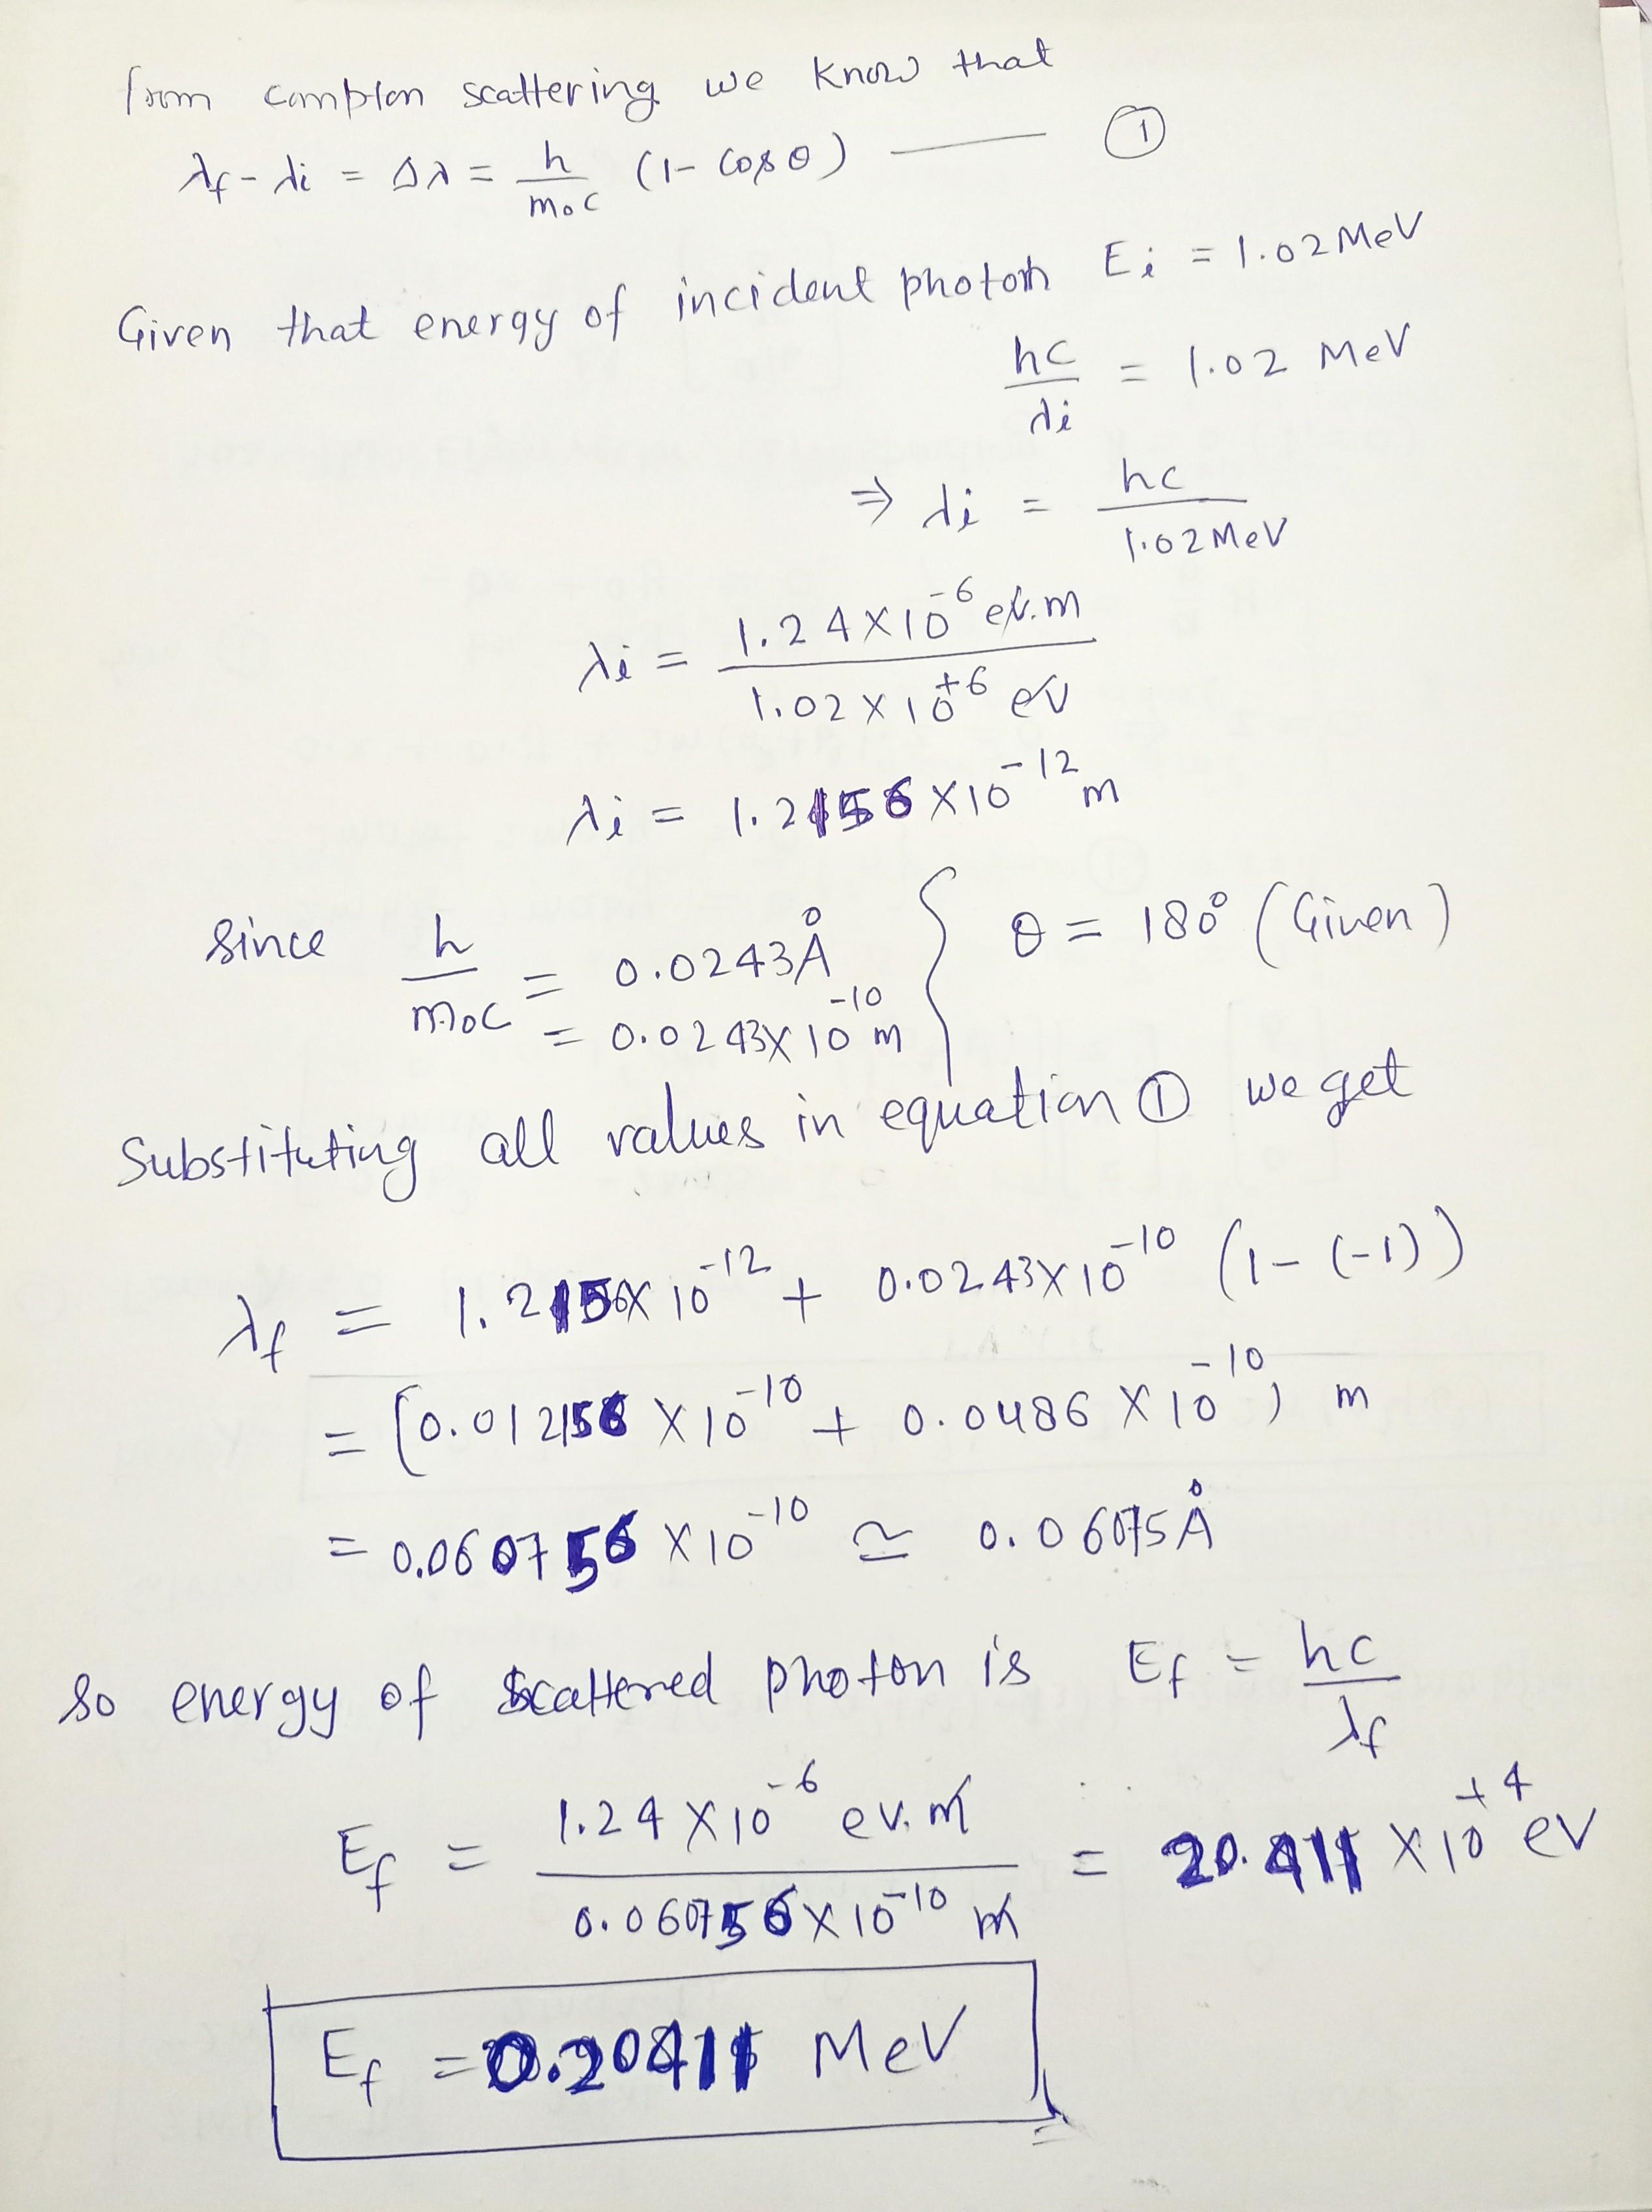 from compton scattering we know that
λf - λi = Δλ = h/m₀c (1 - cosθ) —— ①
Given that energy of incident photon Ei = 1.02 MeV
hc/λi = 1.02 MeV
⇒ λi = hc/1.02 MeV
λi = 1.24 × 10⁻⁶ eV.m / 1.02 × 10⁺⁶ eV
λi = 1.2156 × 10⁻¹² m
Since h/m₀c = 0.0243 Å { θ = 180° (Given)
= 0.0243 × 10⁻¹⁰ m
Substituting all values in equation ① we get
λf = 1.2156 × 10⁻¹² + 0.0243 × 10⁻¹⁰ (1 - (-1))
= (0.012156 × 10⁻¹⁰ + 0.0486 × 10⁻¹⁰) m
= 0.060756 × 10⁻¹⁰ ≃ 0.06075 Å
So energy of scattered photon is Ef = hc/λf
Ef = 1.24 × 10⁻⁶ ev.m / 0.060756 × 10⁻¹⁰ m = 20.411 × 10⁺⁴ ev
Ef = 0.20411 MeV